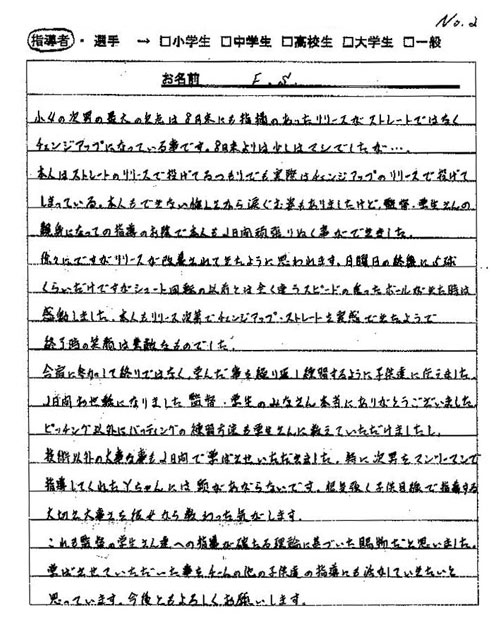 No.2
指導者・選手 → □小学生 □中学生 □高校生 □大学生 □一般
お名前 E.S.
小4の次男の最大の欠点は8月末にも指摘のあったリリースがストレートではなく
チェンジアップになっている事です。8月末よりは少しはマシでしたが…。
本人はストレートのリリースで投げてるつもりでも実際はチェンジアップのリリースで投げて
しまっている。本人もできない悔しさから涙ぐむ姿もありましたけど、監督・学生さんの
親身になっての指導のお陰で本人も2日間頑張りぬく事ができました。
徐々にですがリリースが改善されてきたように思われます。日曜日の終盤に5球
くらいだけですがシュート回転の以前とは全く違うスピードの乗ったボールが出た時は
感動しました。本人もリリース次第でチェンジアップ・ストレートを実感できたようで
終了時の笑顔は素敵なものでした。
今回に参加して終りではなく、学んだ事を繰り返し練習するように子供達に伝えました。
2日間お世話になりました監督・学生のみなさん本当にありがとうございました。
ピッチング以外にバッティングの練習方法も学生さんに教えていただけましたし、
技術以外の大事な事も2日間で学ばせていただきました。特に次男をマンツーマンで
指導してくれたYちゃんには頭があがらないです。根気強く子供目線で指導する
大切さ大事さを彼女から教わった気がします。
これも監督の学生さん達への指導が確たる理論に基づいた賜物だと思いました。
学ばさせていただいた事をチームの他の子供達の指導にも活かしていきたいと
思っています。今後ともよろしくお願いします。